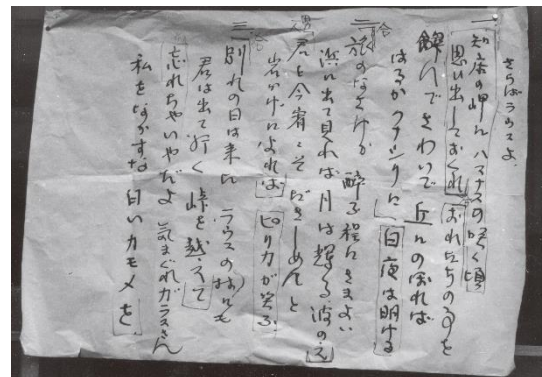 さらばラウスよ
一 知床の岬に ハマナスの咲く頃
思い出しておくれ おれたちの事を
飲んでさわいで 丘にのぼれば
合
はるかクナシリに 白夜は明ける
二 旅のなさけか 酔う程にさまよい
浜に出て見れば 月は輝る波の上
君を今宵こそ だきしめんと
合
岩かげによれば ピリカが笑う
三 別れの日は来た ラウスの村にも
君は出て行く 峠を越えて
忘れちゃいやだよ 気まぐれカラスさん
私をなかすな 白いカモメを